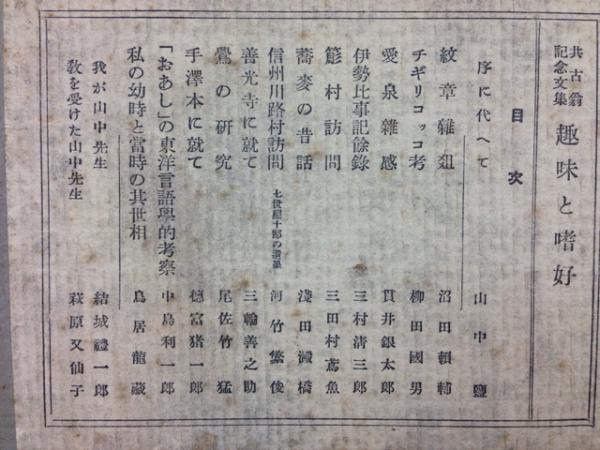 共古翁記念文集 趣味と嗜好
目次
序に代へて 山中鹽
紋章雜俎 沼田頼輔
チギリコッコ考 柳田國男
愛泉雜感 貫井銀太郎
伊勢比事記餘錄 三村清三郎
簓村訪問 三田村鳶魚
蕎麥の昔話 淺田澱橋
信州川路村訪問 七世團十郎の消息 河竹繁俊
善光寺に就て 三輪善之助
鷽の研究 尾佐竹猛
手澤本に就て 德富猪一郎
「おあし」の東洋言語學的考察 中島利一郎
私の幼時と當時の其世相 鳥居龍藏
我が山中先生 結城禮一郎
敎を受けた山中先生 萩原又仙子